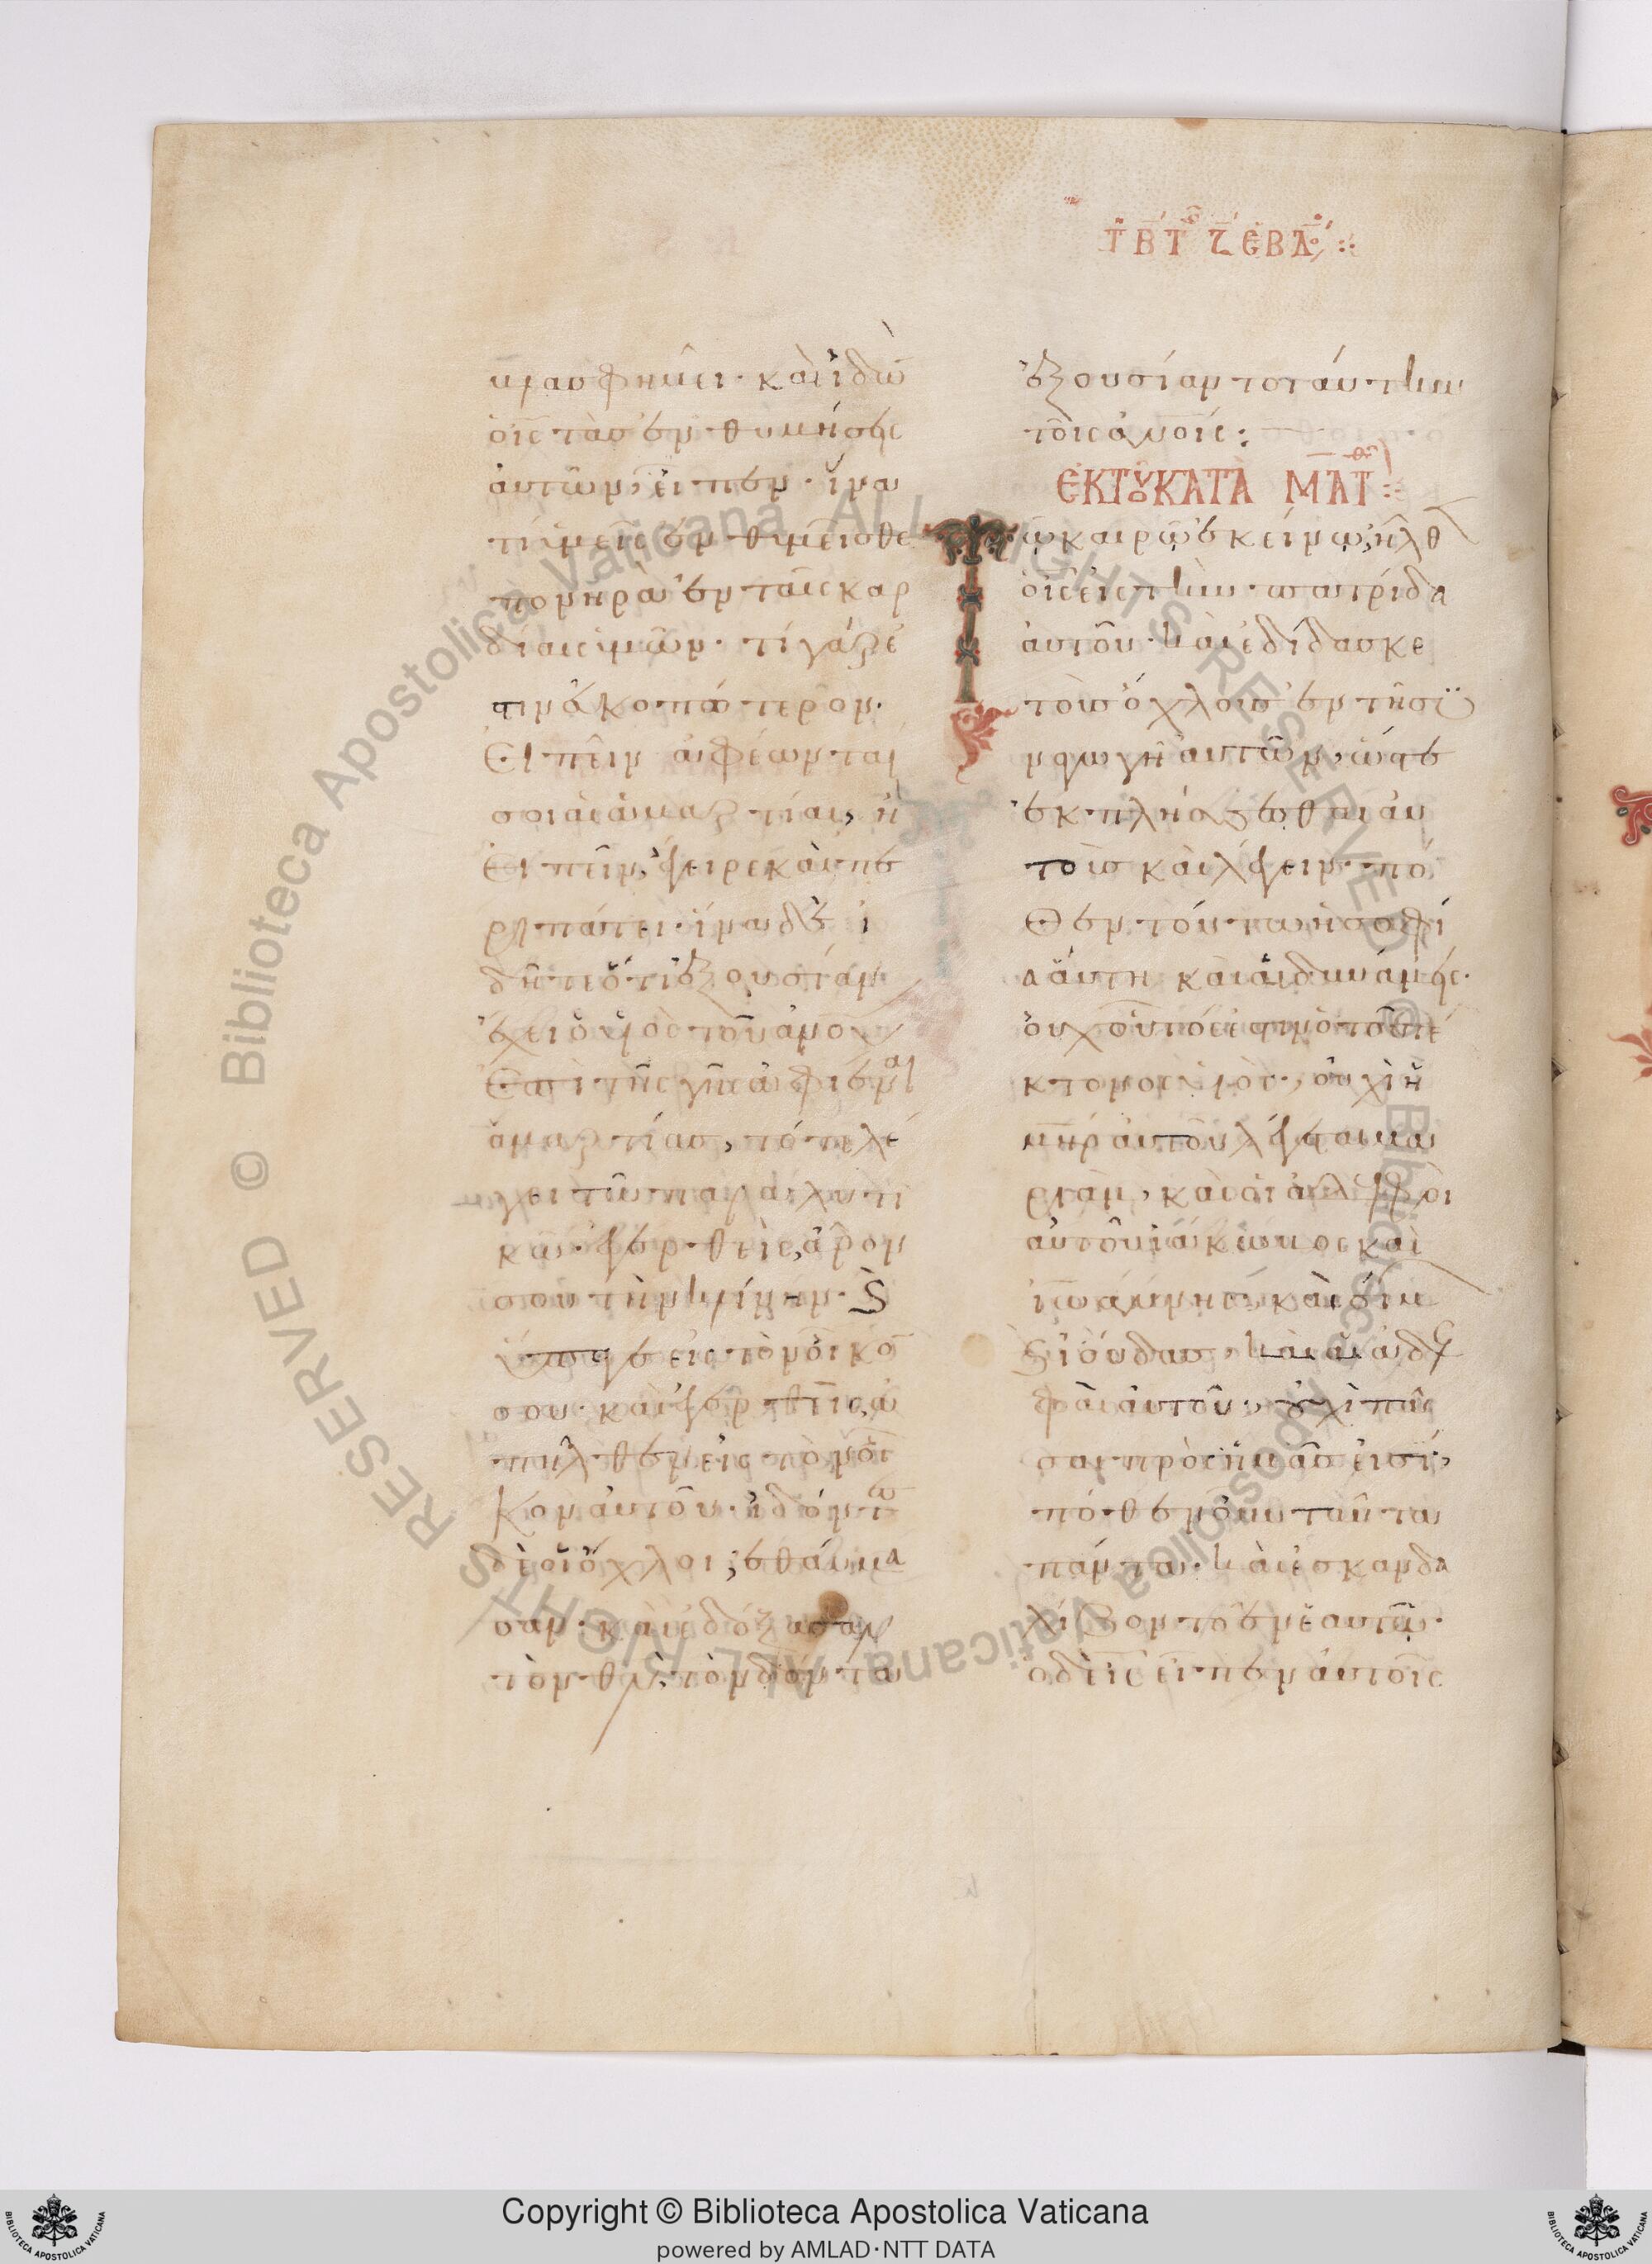 Τῌ Β Τῆς Ζ ΕΒΔο:
βλασφημεῖ· καὶ ἰδὼ̄
ὁ ι̅ς̅ τὰς ἐνθυμήσεις
αὐτῶν, εἶπεν· ἵνα
τί ὑμεῖς ἐνθυμεῖσθε
πονηρὰ ἐν ταῖς καρ
δίαις ὑμῶν· τί γάρ ἐ
στιν εὐκοπώτερον·
Εἰπεῖν ἀφέωνταί
σοι αἱ ἁμαρτίαι, ἢ
Εἰπεῖν, ἔγειρε καὶ πε
ριπάτει· ἵνα δὲ εἰ
δῆτε ὅτι ἐξουσίαν
ἔχει ὁ υἱὸς τοῦ α̅ν̅ο̅υ̅
Ἐπὶ τῆς γῆς ἀφιέναι
ἁμαρτίας, τότε λέ
γει τῷ παραλυτι
κῷ· ἐγερθεὶς ἆρόν
σου τὴν κλίνην· ϗ
ὕπαγε εἰς τὸν οἶκό̄
σου· καὶ ἐγερθεὶς ἀ
πῆλθεν εἰς τὸν οἶ
κον αὐτοῦ· ἰδόντες
δὲ οἱ ὄχλοι, ἐθαύμα
σαν· καὶ ἐδόξασαν
τὸν θ̅ν̅, τὸν δόντα
ἐξουσίαν τοιαύτην
τοῖς α̅ν̅ο̅ι̅ς̅:
ἘΚ ΤΟΥ ΚΑΤΑ ΜΑΤθ:
Τῷ καιρῷ ἐκείνῳ, ἦλθ
ὁ ι̅ς̅ εἰς τὴν πατρίδα
αὐτοῦ· καὶ ἐδίδασκε
τοὺς ὄχλους ἐν τῇ συ
ναγωγῇ αὐτῶν, ὥστε
ἐκπλήσσεσθαι αὐ
τοὺς καὶ λέγειν· πό
Θεν τούτῳ ἡ σοφί
α αὕτη καὶ αἱ δυνάμεις·
οὐχ οὗτός ἐστιν ὁ τοῦ τέ
κτονος υἱός, οὐχὶ ἡ
μ̅η̅ρ̅ αὐτοῦ λέγεται μα
ριάμ, καὶ οἱ ἀδελφοὶ
αὐτοῦ ἰάκωβος καὶ
ἰωάννης, καὶ σίμω̄
ϗ ἰούδας, καὶ αἱ ἀδελ
φαὶ αὐτοῦ, οὐχὶ πᾶ
σαι πρὸς ἡμᾶς εἰσί,
πόθεν οὖν ταῦτα
πάντα· καὶ ἐσκανδα
λίζοντο ἐν αὐτῷ·
ὁ δὲ ι̅ς̅ εἶπεν αὐτοῖς
Copyright © Biblioteca Apostolica Vaticana
powered by AMLAD·NTT DATA